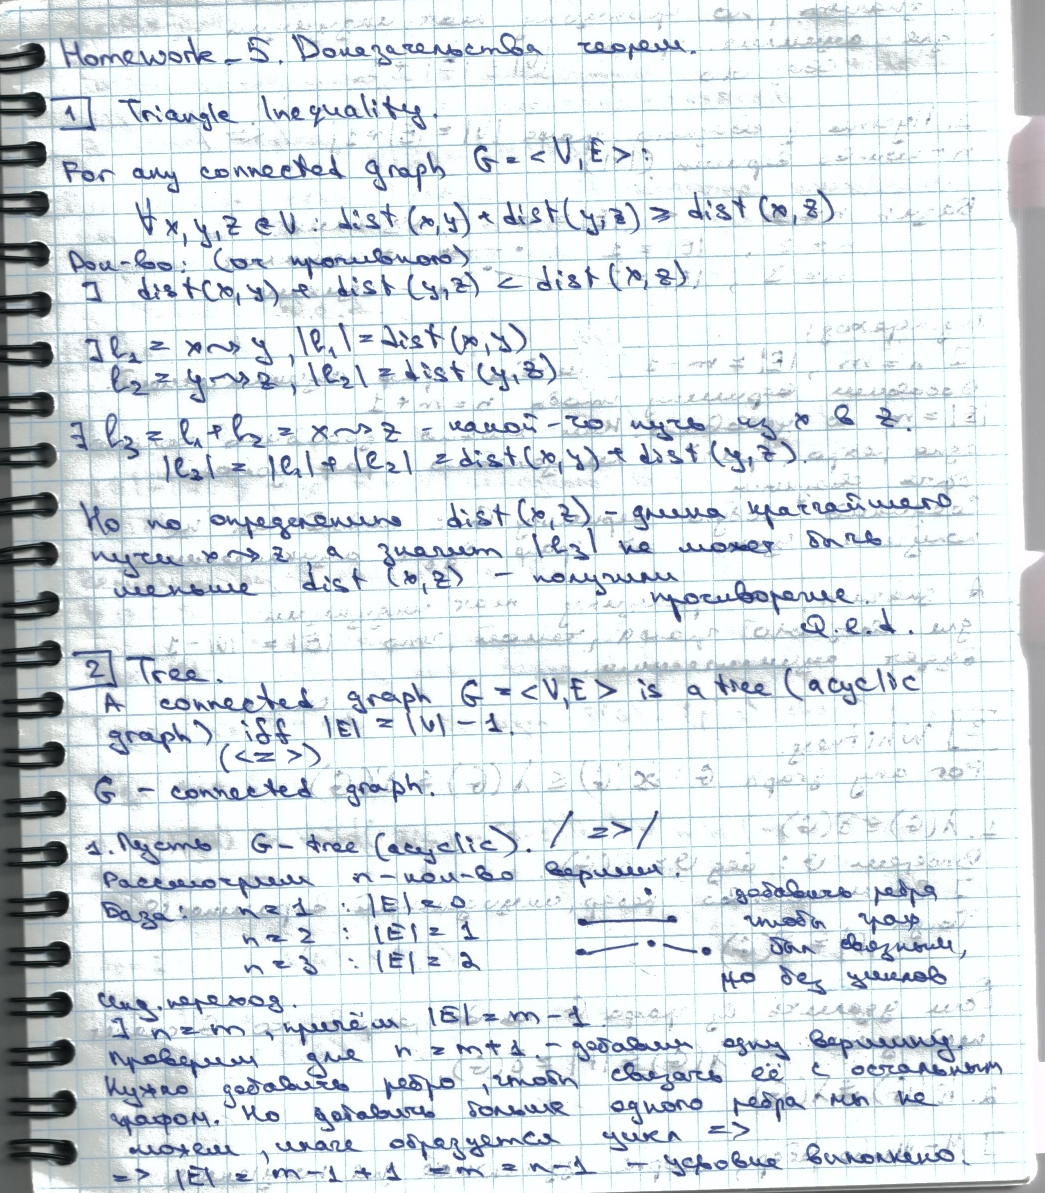 Homework_5. Доказательства теорем.
1 Triangle Inequality.
For any connected graph G = <V, E> :
∀ x, y, z ∈ V : dist (x, y) + dist (y, z) ≥ dist (x, z)
Док-во: (от противного)
] dist (x, y) + dist (y, z) < dist (x, z)
] l₁ = x ⇝ y, |l₁| = dist (x, y)
l₂ = y ⇝ z, |l₂| = dist (y, z)
∃ l₃ = l₁ + l₂ = x ⇝ z - какой-то путь из x в z.
|l₃| = |l₁| + |l₂| = dist (x, y) + dist (y, z).
Но по определению dist (x, z) - длина кратчайшего
пути x ⇝ z, а значит |l₃| не может быть
меньше dist (x, z) - получили
противоречие.
Q.e.d.
2 Tree.
A connected graph G = <V, E> is a tree (acyclic
graph) iff |E| = |V| - 1.
(<=>)
G - connected graph.
1. Пусть G - tree (acyclic). / => /
Рассмотрим n - кол-во вершин.
База: n = 1 : |E| = 0
n = 2 : |E| = 1
n = 3 : |E| = 2
добавить ребра
чтобы граф
был связным,
но без циклов
Инд. переход.
] n = m, причём |E| = m - 1
Проверим для n = m + 1 - добавим одну вершину
Нужно добавить ребро, чтобы связать её с остальным
графом. Но добавить больше одного ребра мы не
можем, иначе образуется цикл =>
=> |E| = m - 1 + 1 = m = n - 1 - условие выполнено.